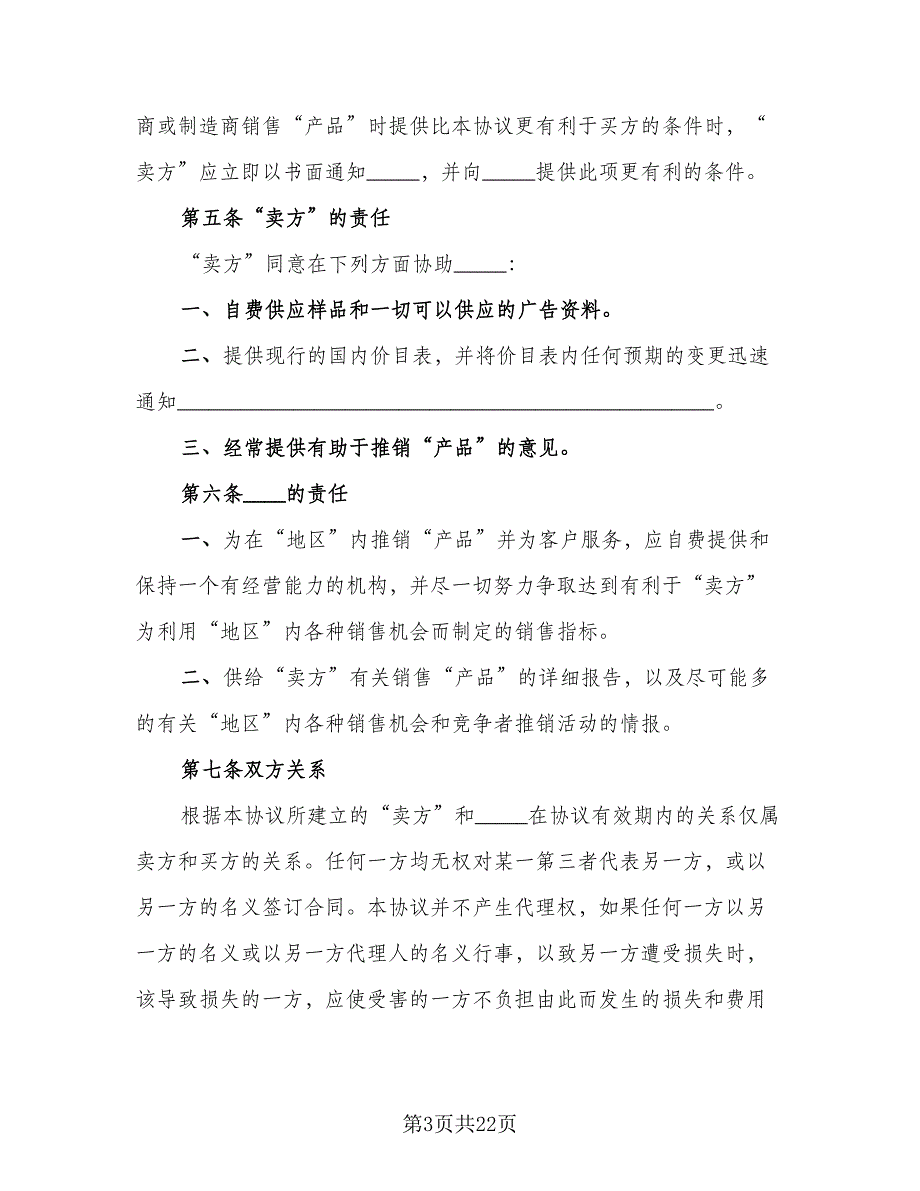 商或制造商销售“产品”时提供比本协议更有利于买方的条件时，“
卖方”应立即以书面通知_____，并向_____提供此项更有利的条件。
第五条“卖方”的责任
“卖方”同意在下列方面协助_____：
一、自费供应样品和一切可以供应的广告资料。
二、提供现行的国内价目表，并将价目表内任何预期的变更迅速
通知___________________________________________________。
三、经常提供有助于推销“产品”的意见。
第六条____的责任
一、为在“地区”内推销“产品”并为客户服务，应自费提供和
保持一个有经营能力的机构，并尽一切努力争取达到有利于“卖方”
为利用“地区”内各种销售机会而制定的销售指标。
二、供给“卖方”有关销售“产品”的详细报告，以及尽可能多
的有关“地区”内各种销售机会和竞争者推销活动的情报。
第七条双方关系
根据本协议所建立的“卖方”和_____在协议有效期内的关系仅属
卖方和买方的关系。任何一方均无权对某一第三者代表另一方，或以
另一方的名义签订合同。本协议并不产生代理权，如果任何一方以另
一方的名义或以另一方代理人的名义行事，以致另一方遭受损失时，
该导致损失的一方，应使受害的一方不负担由此而发生的损失和费用
第3页共22页